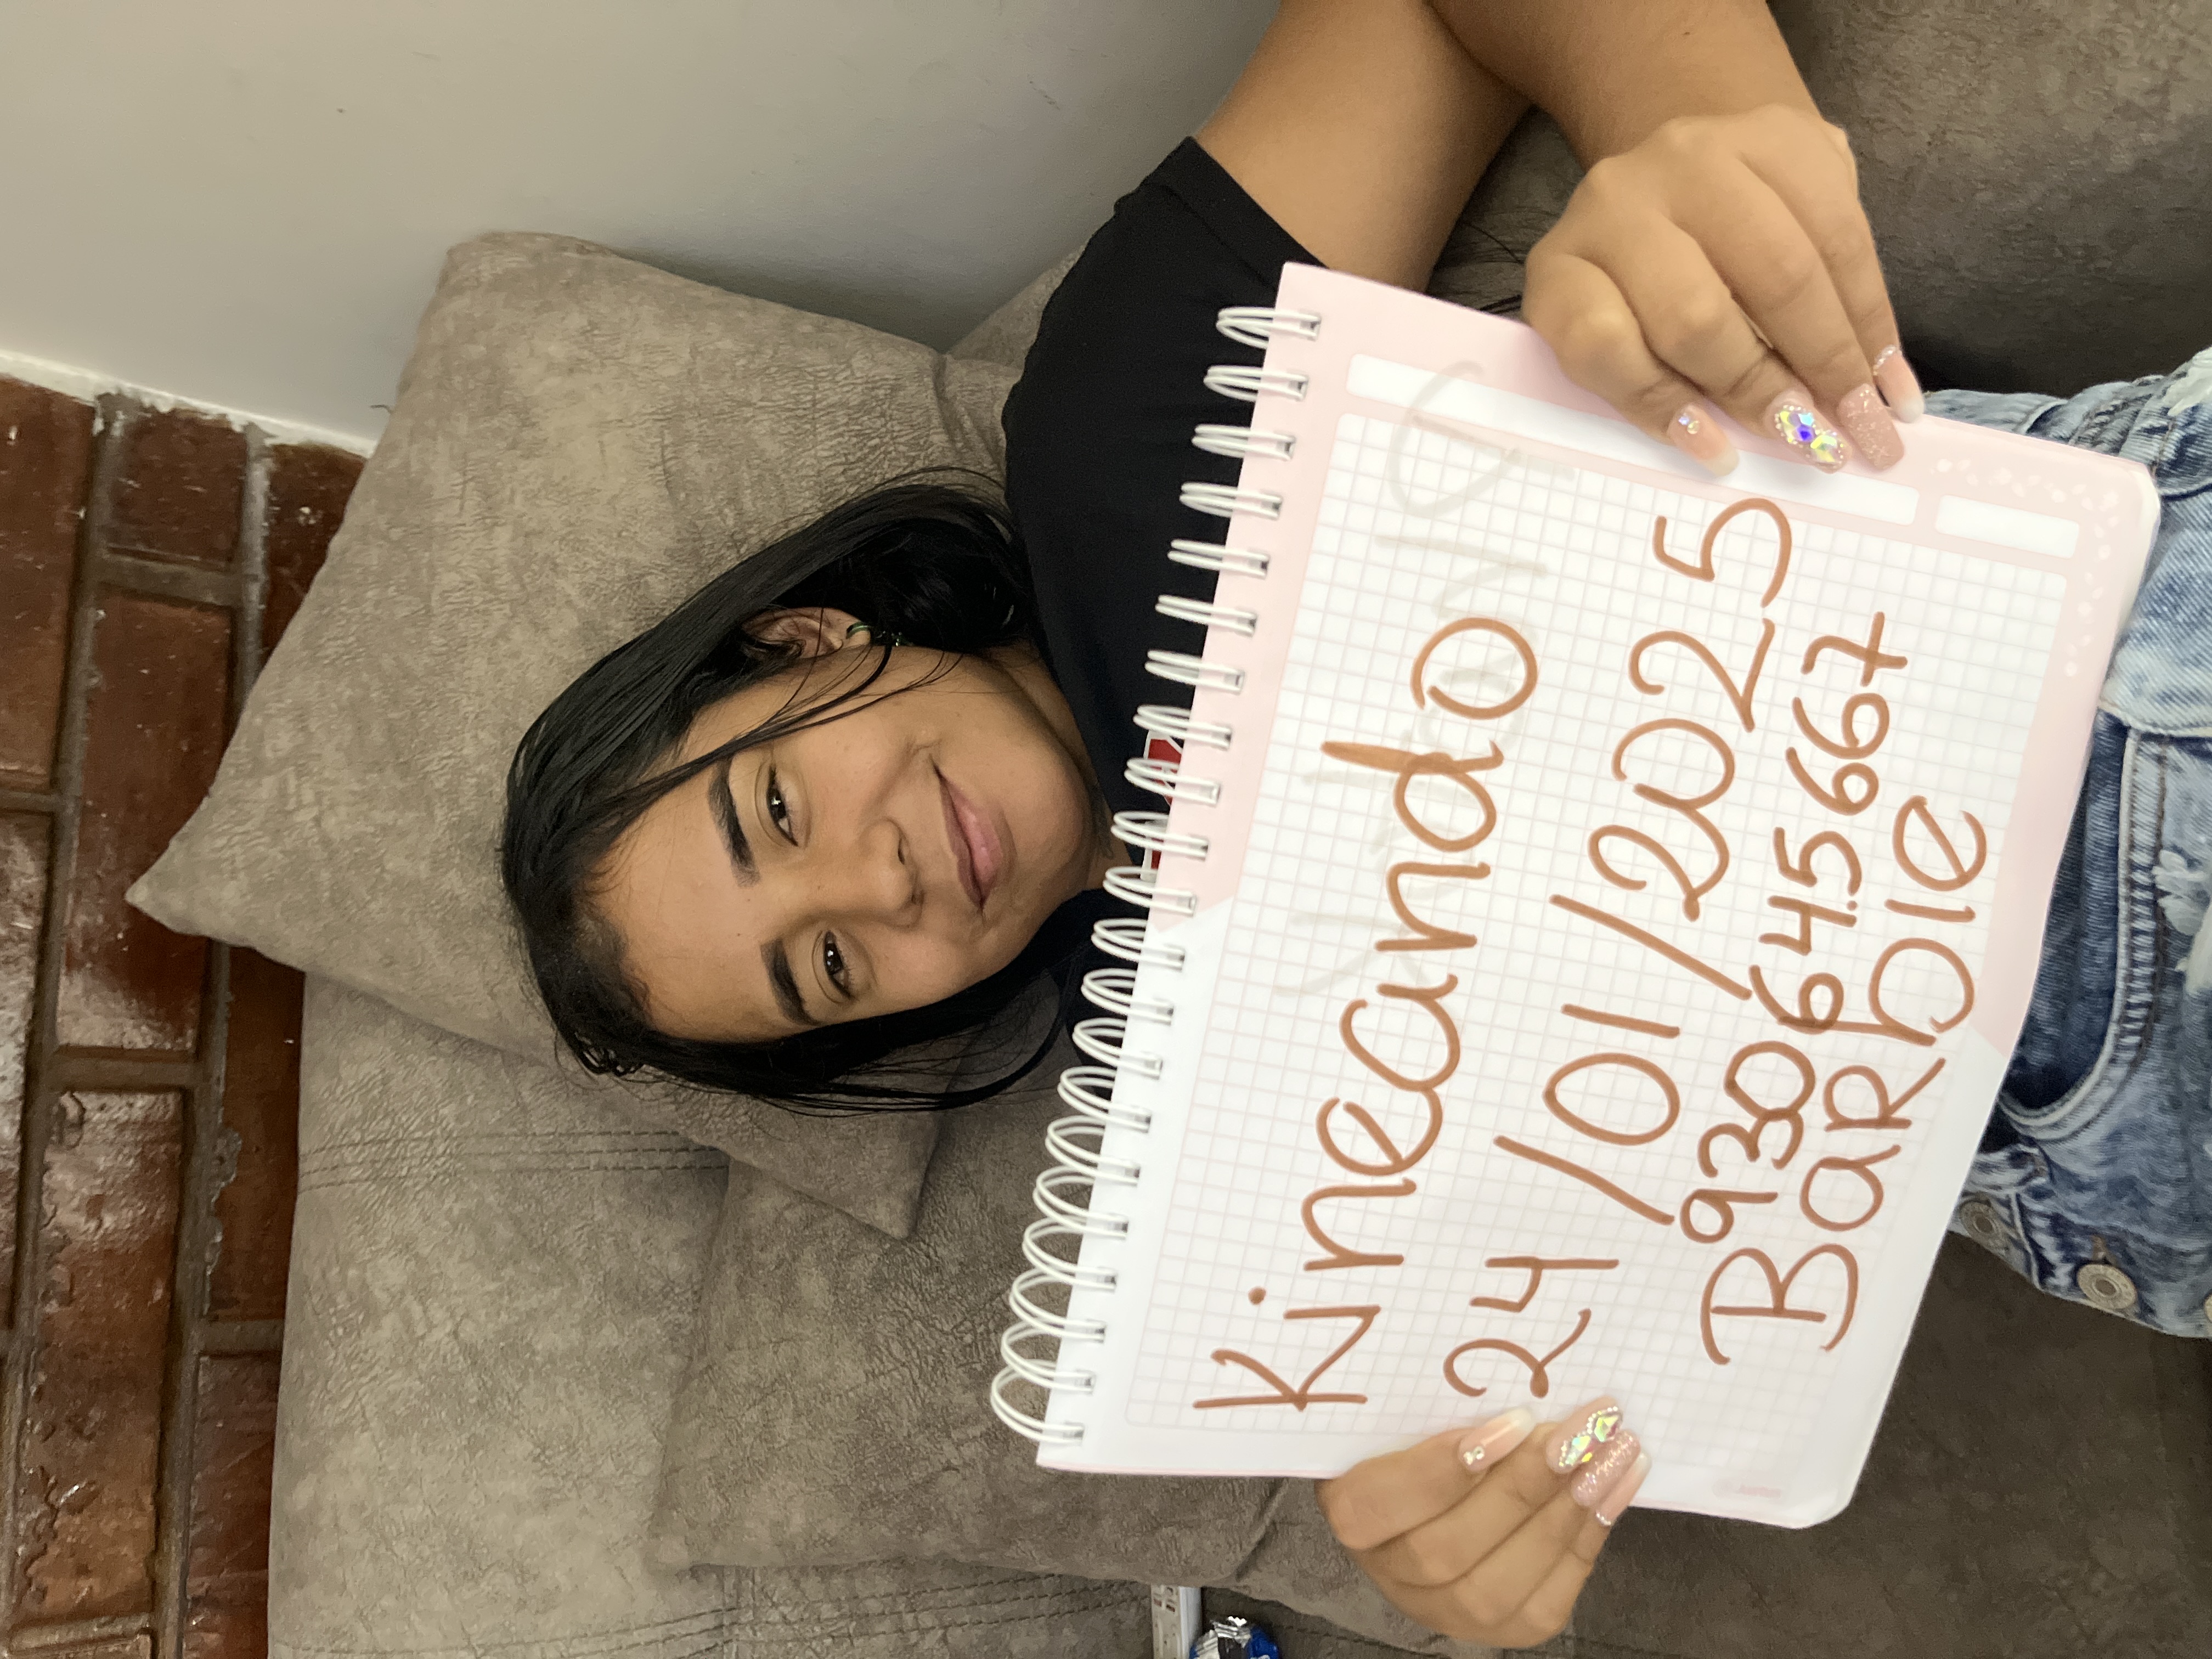 Kineando
24/01/2025
930645667
Barbie